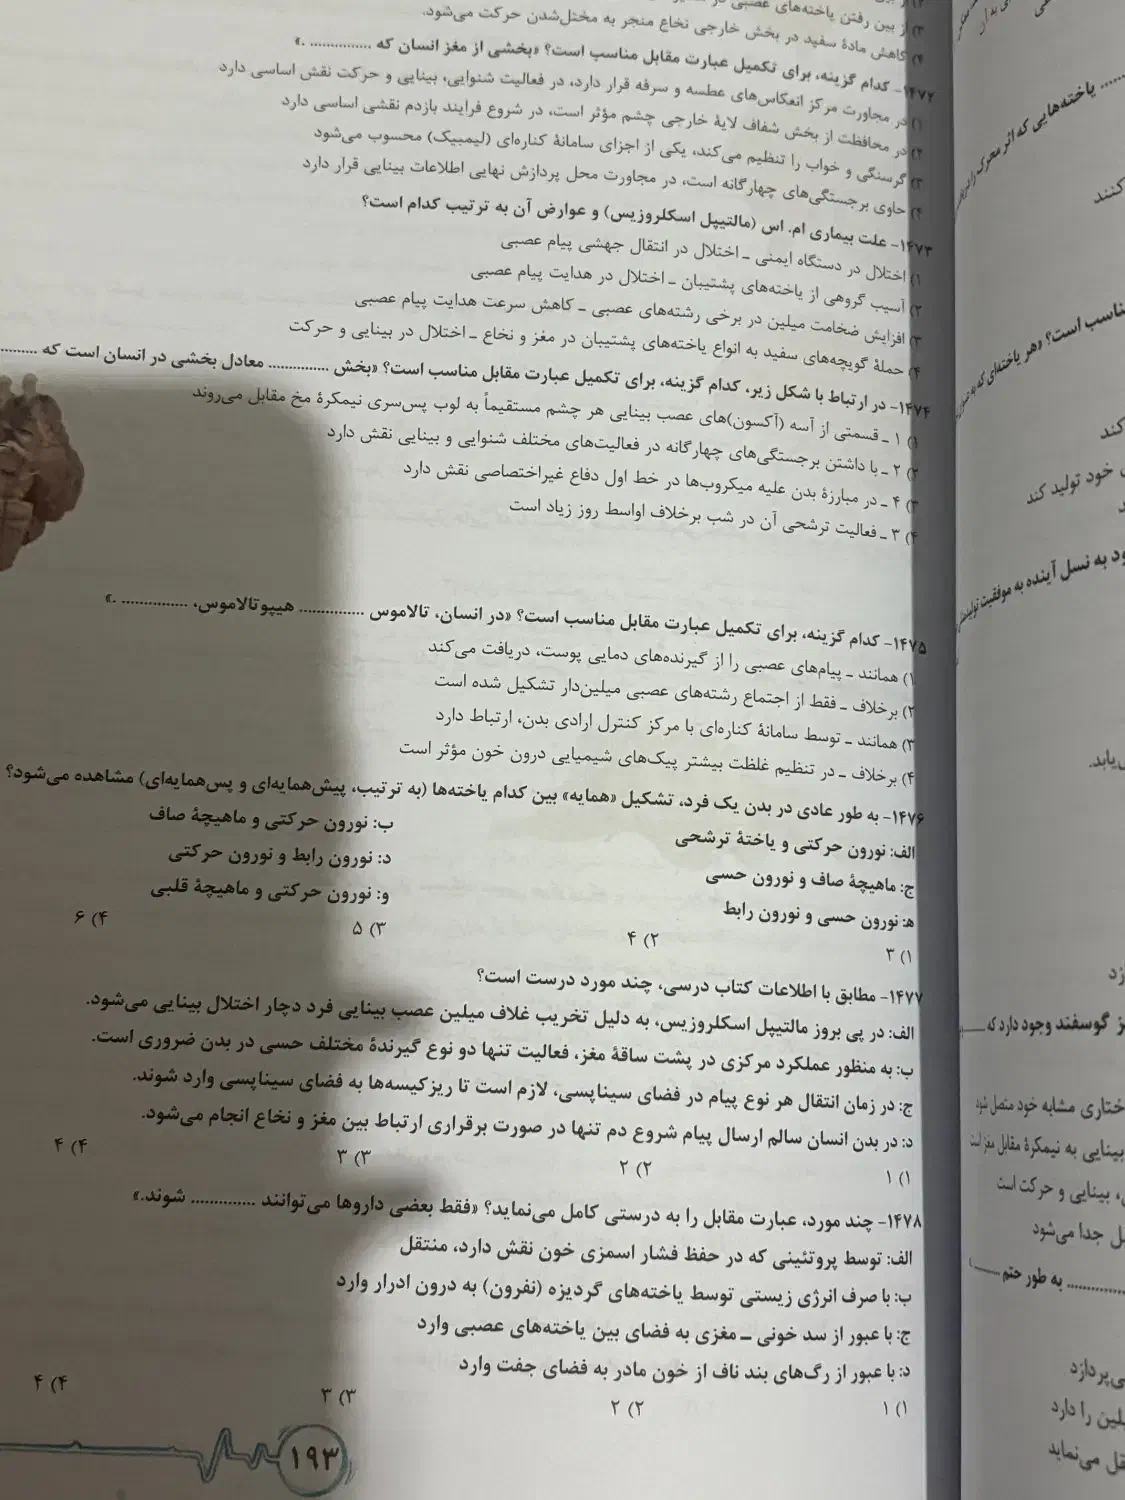 ۳) از بین رفتن یاخته‌های عصبی در
۴) کاهش مادهٔ سفید در بخش خارجی نخاع منجر به مختل‌شدن حرکت می‌شود.
۱۴۷۲- کدام گزینه، برای تکمیل عبارت مقابل مناسب است؟ «بخشی از مغز انسان که ............... .»
۱) در مجاورت مرکز انعکاس‌های عطسه و سرفه قرار دارد، در فعالیت شنوایی، بینایی و حرکت نقش اساسی دارد
۲) در محافظت از بخش شفاف لایهٔ خارجی چشم مؤثر است، در شروع فرایند بازدم نقشی اساسی دارد
۳) گرسنگی و خواب را تنظیم می‌کند، یکی از اجزای سامانهٔ کناره‌ای (لیمبیک) محسوب می‌شود
۴) حاوی برجستگی‌های چهارگانه است، در مجاورت محل پردازش نهایی اطلاعات بینایی قرار دارد
۱۴۷۳- علت بیماری ام. اس (مالتیپل اسکلروزیس) و عوارض آن به ترتیب کدام است؟
۱) اختلال در دستگاه ایمنی ـ اختلال در انتقال جهشی پیام عصبی
۲) آسیب گروهی از یاخته‌های پشتیبان ـ اختلال در هدایت پیام عصبی
۳) افزایش ضخامت میلین در برخی رشته‌های عصبی ـ کاهش سرعت هدایت پیام عصبی
۴) حملهٔ گویچه‌های سفید به انواع یاخته‌های پشتیبان در مغز و نخاع ـ اختلال در بینایی و حرکت
۱۴۷۴- در ارتباط با شکل زیر، کدام گزینه، برای تکمیل عبارت مقابل مناسب است؟ «بخش ............... معادل بخشی در انسان است که .........
۱) ۱ ـ قسمتی از آسه (آکسون)های عصب بینایی هر چشم مستقیماً به لوب پس‌سری نیمکرهٔ مخ مقابل می‌روند
۲) ۲ ـ با داشتن برجستگی‌های چهارگانه در فعالیت‌های مختلف شنوایی و بینایی نقش دارد
۳) ۴ ـ در مبارزهٔ بدن علیه میکروب‌ها در خط اول دفاع غیراختصاصی نقش دارد
۴) ۳ ـ فعالیت ترشحی آن در شب برخلاف اواسط روز زیاد است
۱۴۷۵- کدام گزینه، برای تکمیل عبارت مقابل مناسب است؟ «در انسان، تالاموس ............... هیپوتالاموس، ............... .»
۱) همانند ـ پیام‌های عصبی را از گیرنده‌های دمایی پوست، دریافت می‌کند
۲) برخلاف ـ فقط از اجتماع رشته‌های عصبی میلین‌دار تشکیل شده است
۳) همانند ـ توسط سامانهٔ کناره‌ای با مرکز کنترل ارادی بدن، ارتباط دارد
۴) برخلاف ـ در تنظیم غلظت بیشتر پیک‌های شیمیایی درون خون مؤثر است
۱۴۷۶- به طور عادی در بدن یک فرد، تشکیل «همایه» بین کدام یاخته‌ها (به ترتیب، پیش‌همایه‌ای و پس‌همایه‌ای) مشاهده می‌شود؟
الف: نورون حرکتی و یاختهٔ ترشحی ب: نورون حرکتی و ماهیچهٔ صاف
ج: ماهیچهٔ صاف و نورون حسی د: نورون رابط و نورون حرکتی
ه‍: نورون حسی و نورون رابط و: نورون حرکتی و ماهیچهٔ قلبی
۱) ۳ ۲) ۴ ۳) ۵ ۴) ۶
۱۴۷۷- مطابق با اطلاعات کتاب درسی، چند مورد درست است؟
الف: در پی بروز مالتیپل اسکلروزیس، به دلیل تخریب غلاف میلین عصب بینایی فرد دچار اختلال بینایی می‌شود.
ب: به منظور عملکرد مرکزی در پشت ساقهٔ مغز، فعالیت تنها دو نوع گیرندهٔ مختلف حسی در بدن ضروری است.
ج: در زمان انتقال هر نوع پیام در فضای سیناپسی، لازم است تا ریزکیسه‌ها به فضای سیناپسی وارد شوند.
د: در بدن انسان سالم ارسال پیام شروع دم تنها در صورت برقراری ارتباط بین مغز و نخاع انجام می‌شود.
۱) ۱ ۲) ۲ ۳) ۳ ۴) ۴
۱۴۷۸- چند مورد، عبارت مقابل را به درستی کامل می‌نماید؟ «فقط بعضی داروها می‌توانند ............. شوند.»
الف: توسط پروتئینی که در حفظ فشار اسمزی خون نقش دارد، منتقل
ب: با صرف انرژی زیستی توسط یاخته‌های گردیزه (نفرون) به درون ادرار وارد
ج: با عبور از سد خونی ـ مغزی به فضای بین یاخته‌های عصبی وارد
د: با عبور از رگ‌های بند ناف از خون مادر به فضای جفت وارد
۱) ۱ ۲) ۲ ۳) ۳ ۴) ۴
۱۹۳
...... یاخته‌هایی که اثر محرک را
کنند
مناسب است؟ «هر یاخته‌ای که به
کند
خود تولید کند
ود به نسل آینده به موفقیت
می‌یابد.
گوسفند وجود دارد که
ختاری مشابه خود متصل شود
بینایی به نیمکرهٔ مقابل مغز است
، بینایی و حرکت است
جدا می‌شود
............ به طور حتم
می‌پردازد
میلین را دارد
منتقل می‌نماید